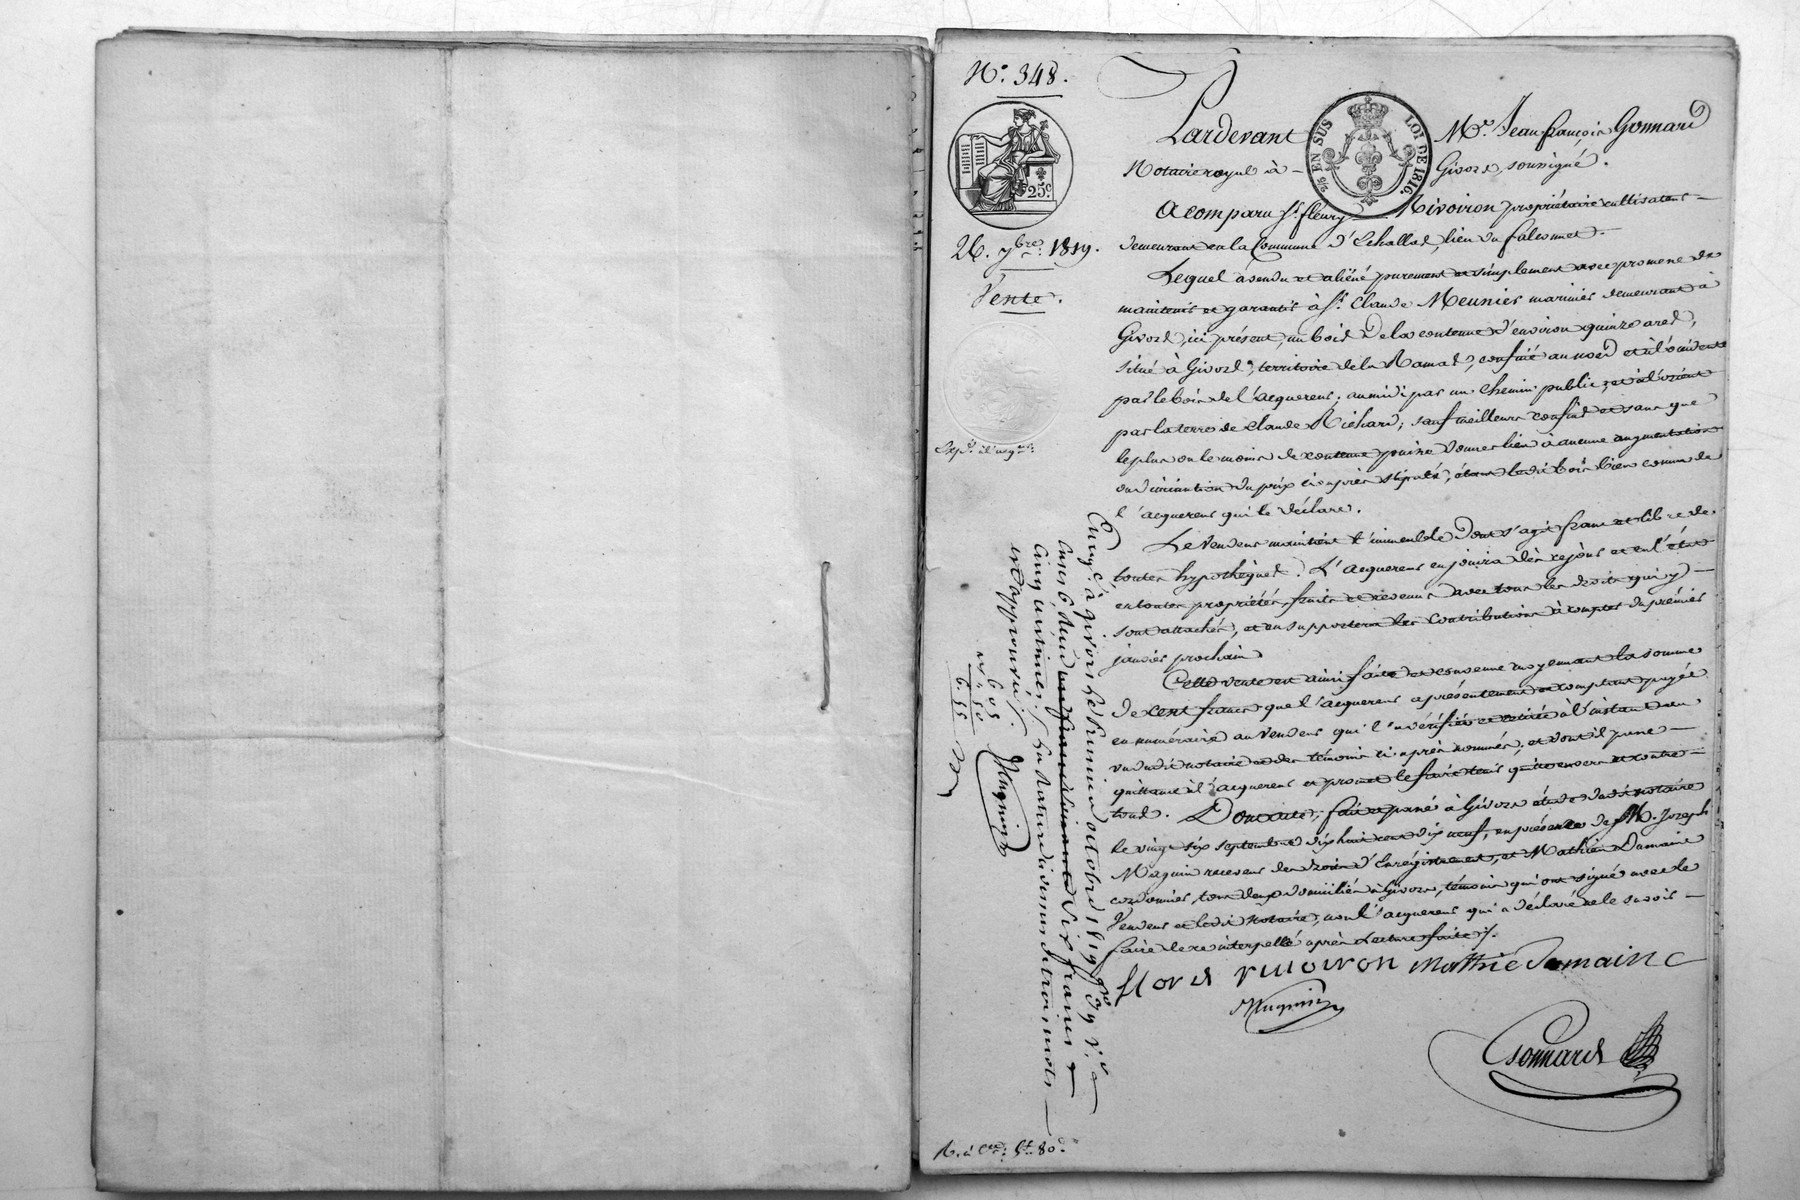 N.º 348.
25.c
26. 7bre. 1819.
Vente.
EN SUS LOI DE 1816.
Pardevant M.e Jean françois Gonnard
Notaire royal à Givors, soussigné.
A comparu S.r fleury Rivoiron propriétaire cultivateur
demeurant en la Commune d'Echallas, lieu du falconnet.
Lequel a vendu et aliéné purement et simplement avec promesse de
maintenir et garantir à S.r Claude Meunier marinier demeurant à
Givors, ici présent, un bois de la contenue d'environ quinze ares,
situé à Givors, territoire de la Ramas, confiné au nord et à l'occident
par le bois de l'acquereur; au midi par un chemin public, et à l'orient
par la terre de Claude Richard; sauf meilleurs confins et sans que
le plus ou le moins de contenue puisse donner lieu à aucune augmentation
ou diminution du prix ci-après stipulé, étant le dit bois bien connu de
l'acquereur qui le déclare.
Le vendeur maintient l'immeuble dont s'agit franc et libre de
toutes hypothèques. L'acquereur en jouira dès ce jour et en l'état
en toutes propriétés, fruits et revenus avec tous les droits qui y
sont attachés, et en supportera les contributions à compter du premier
janvier prochain
Cette vente est ainsi faite et convenue moyennant la somme
de cent francs que l'acquereur a présentement et comptant payée
en numéraire au vendeur qui l'a vérifiée et retirée à l'instant au
vu dudit notaire et des témoins ci-après nommés, et dont il passe
quittance à l'acquereur et promet le faire tenir quitte envers et contre
tous. Dont acte, fait et passé à Givors étude dudit notaire
le vingt six septembre dix huit cent dix neuf, en présence de M. Joseph
Muguin receveur des droits d'Enregistrement, et Mathieu Damaine
cordonnier, tous deux domiciliés à Givors, témoins qui ont signé avec le
vendeur et ledit notaire, non l'acquereur qui a déclaré ne le savoir
faire de ce interpellé après lecture faite.
flory rivoiron Mathie Damaine
Muguin
Gonnard
Enreg.é à givors le huit octobre 1819 f.o 39 r.o
Reçu cinq francs cinquante Six francs
cinq centimes
6 05
50
6. 55